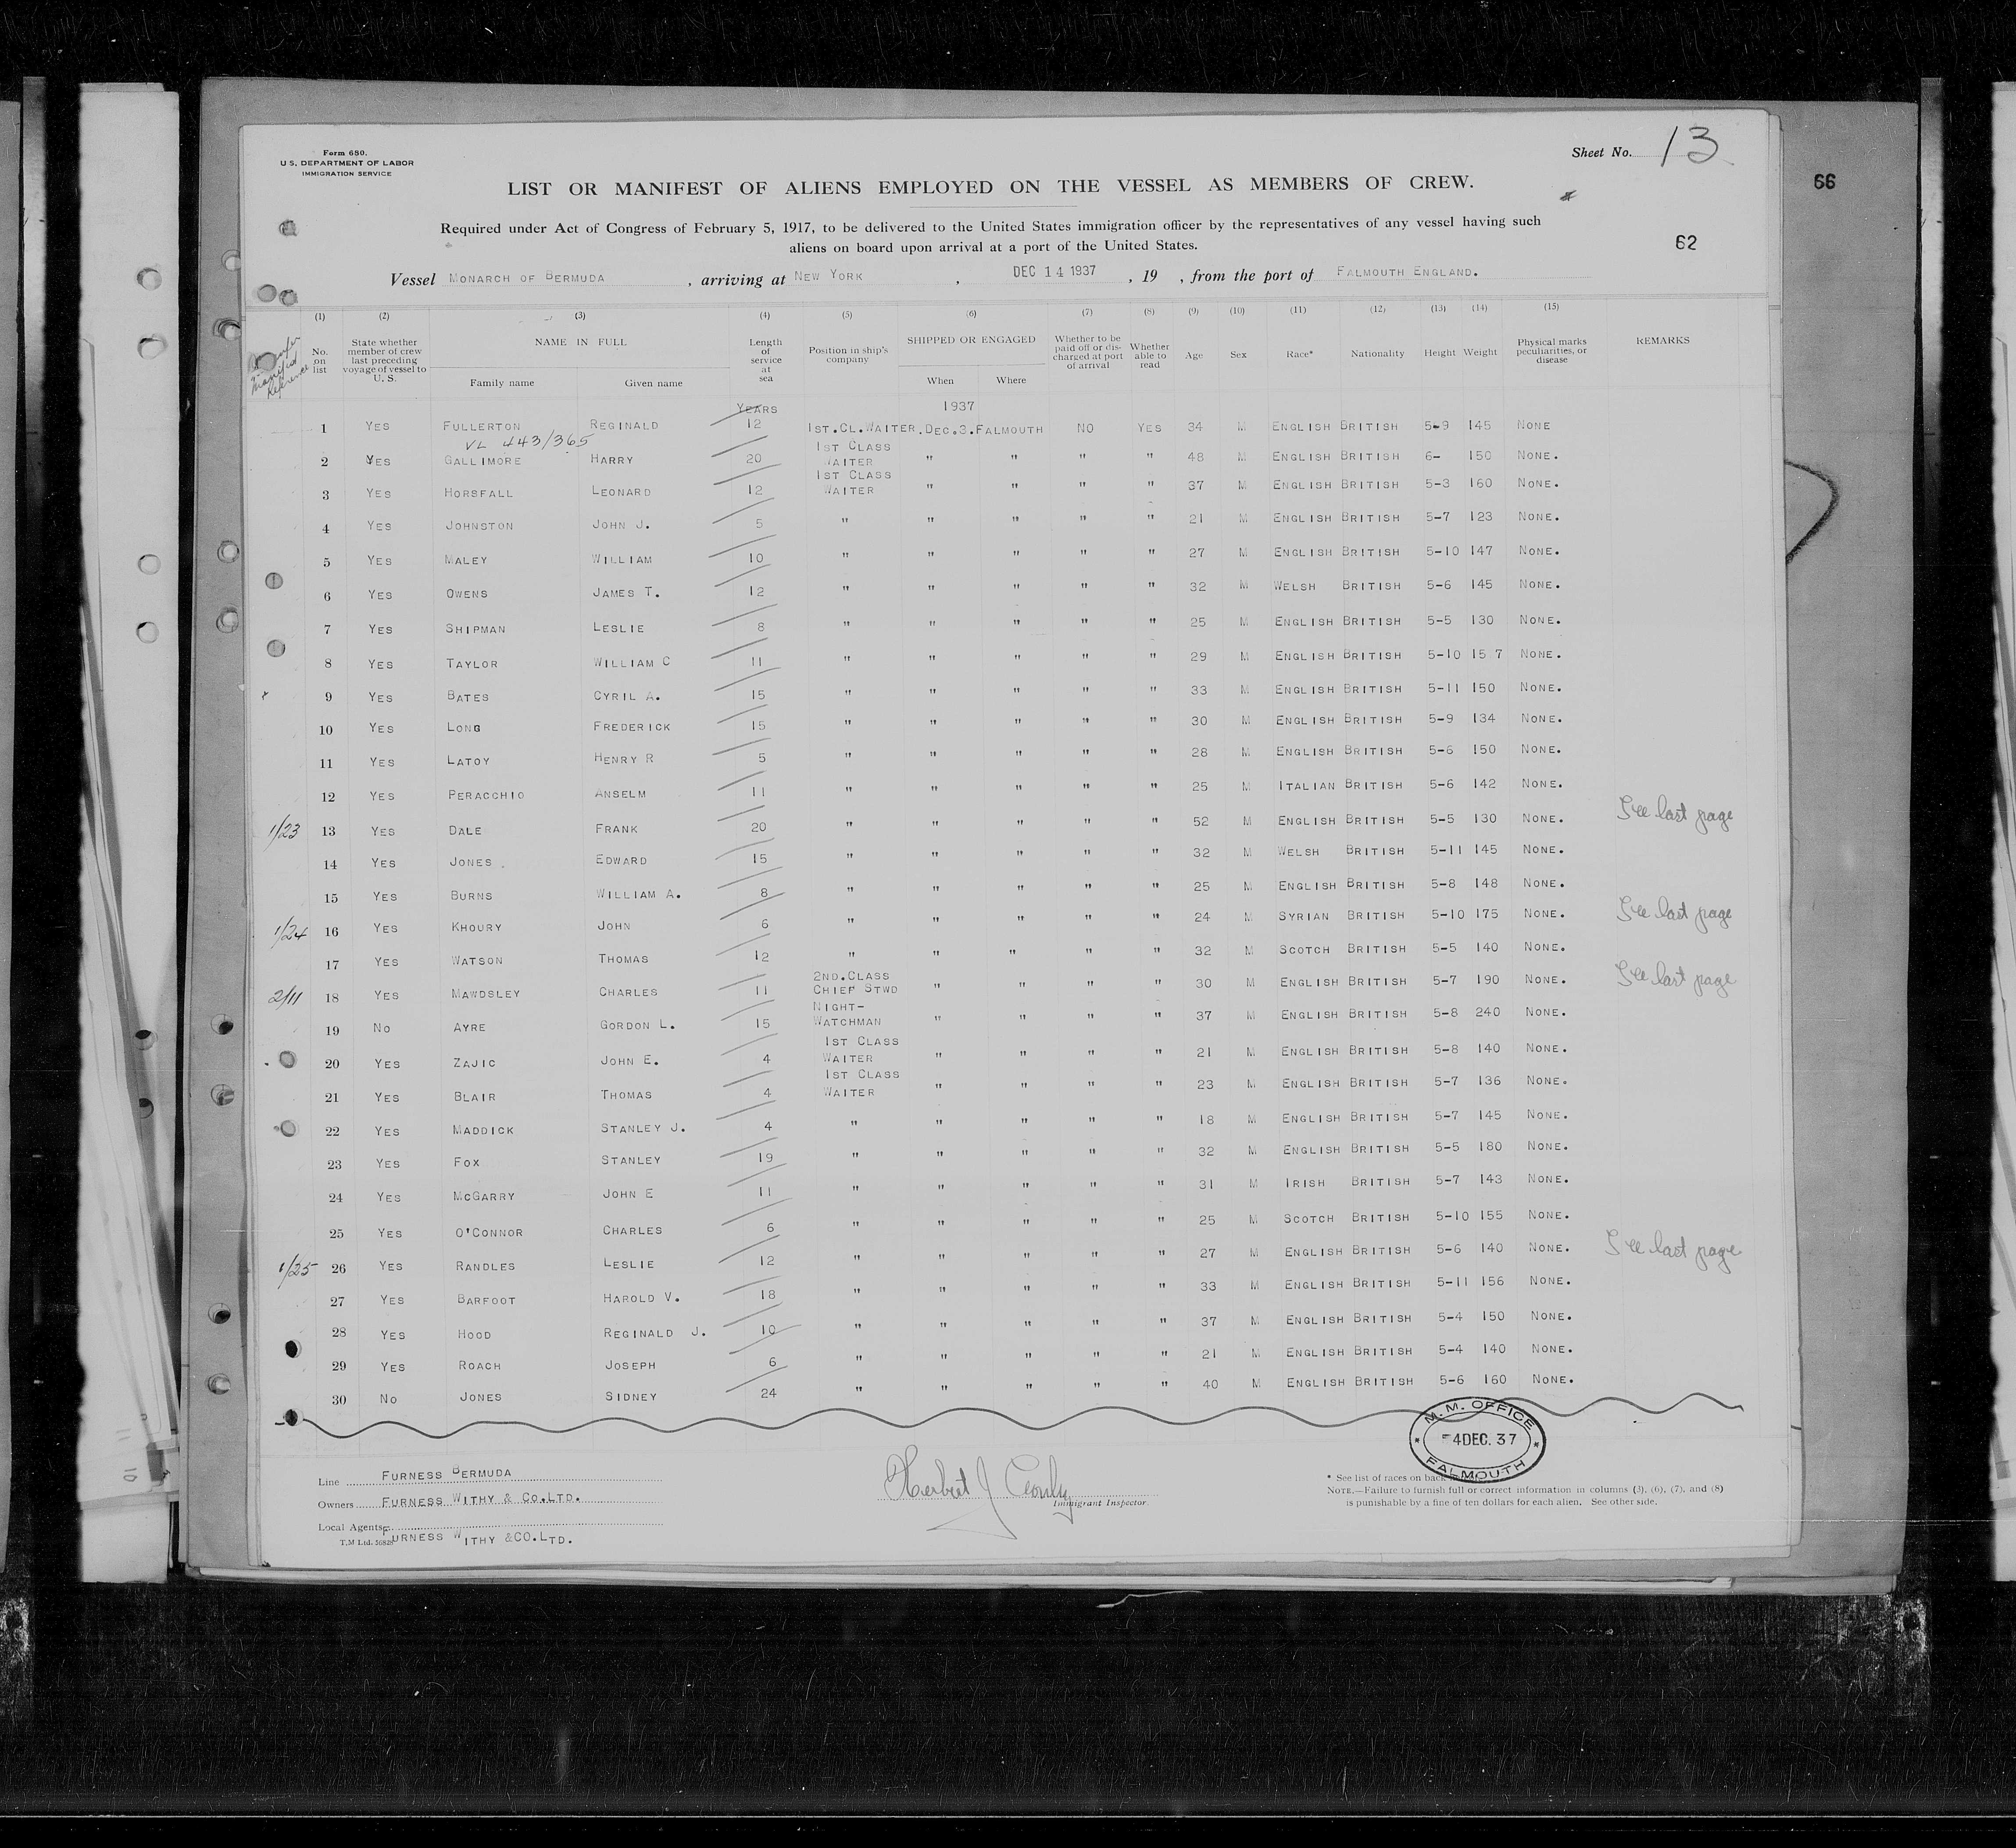 Form 680.
U.S. DEPARTMENT OF LABOR
IMMIGRATION SERVICE
Sheet No. 13
66
LIST OR MANIFEST OF ALIENS EMPLOYED ON THE VESSEL AS MEMBERS OF CREW.
Required under Act of Congress of February 5, 1917, to be delivered to the United States immigration officer by the representatives of any vessel having such
aliens on board upon arrival at a port of the United States.
62
Vessel MONARCH OF BERMUDA , arriving at NEW YORK , DEC 14 1937 , 19 , from the port of FALMOUTH ENGLAND.
(1) (2) (3) (4) (5) (6) (7) (8) (9) (10) (11) (12) (13) (14) (15)
No. on list State whether member of crew last preceding voyage of vessel to U. S. NAME IN FULL Family name Given name Length of service at sea Position in ship's company SHIPPED OR ENGAGED When Where Whether to be paid off or discharged at port of arrival Whether able to read Age Sex Race* Nationality Height Weight Physical marks peculiarities, or disease REMARKS
YEARS 1937
1 YES FULLERTON REGINALD 12 1ST.CL.WAITER.DEC.3.FALMOUTH NO YES 34 M ENGLISH BRITISH 5-9 145 NONE
VL 443/365
2 YES GALLIMORE HARRY 20 1ST CLASS WAITER " " " " 48 M ENGLISH BRITISH 6- 150 NONE.
3 YES HORSFALL LEONARD 12 1ST CLASS WAITER " " " " 37 M ENGLISH BRITISH 5-3 160 NONE.
4 YES JOHNSTON JOHN J. 5 " " " " " 21 M ENGLISH BRITISH 5-7 123 NONE.
5 YES MALEY WILLIAM 10 " " " " " 27 M ENGLISH BRITISH 5-10 147 NONE.
6 YES OWENS JAMES T. 12 " " " " " 32 M WELSH BRITISH 5-6 145 NONE.
7 YES SHIPMAN LESLIE 8 " " " " " 25 M ENGLISH BRITISH 5-5 130 NONE.
8 YES TAYLOR WILLIAM C 11 " " " " " 29 M ENGLISH BRITISH 5-10 15 7 NONE.
9 YES BATES CYRIL A. 15 " " " " " 33 M ENGLISH BRITISH 5-11 150 NONE.
10 YES LONG FREDERICK 15 " " " " " 30 M ENGLISH BRITISH 5-9 134 NONE.
11 YES LATOY HENRY R 5 " " " " " 28 M ENGLISH BRITISH 5-6 150 NONE.
12 YES PERACCHIO ANSELM 11 " " " " " 25 M ITALIAN BRITISH 5-6 142 NONE.
1/23 13 YES DALE FRANK 20 " " " " " 52 M ENGLISH BRITISH 5-5 130 NONE. See last page
14 YES JONES EDWARD 15 " " " " " 32 M WELSH BRITISH 5-11 145 NONE.
15 YES BURNS WILLIAM A. 8 " " " " " 25 M ENGLISH BRITISH 5-8 148 NONE.
1/24 16 YES KHOURY JOHN 6 " " " " " 24 M SYRIAN BRITISH 5-10 175 NONE. See last page
17 YES WATSON THOMAS 12 " " " " " 32 M SCOTCH BRITISH 5-5 140 NONE.
2/11 18 YES MAWDSLEY CHARLES 11 2ND.CLASS CHIEF STWD " " " " 30 M ENGLISH BRITISH 5-7 190 NONE. See last page
19 NO AYRE GORDON L. 15 NIGHT-WATCHMAN " " " " 37 M ENGLISH BRITISH 5-8 240 NONE.
20 YES ZAJIC JOHN E. 4 1ST CLASS WAITER " " " " 21 M ENGLISH BRITISH 5-8 140 NONE.
21 YES BLAIR THOMAS 4 1ST CLASS WAITER " " " " 23 M ENGLISH BRITISH 5-7 136 NONE.
22 YES MADDICK STANLEY J. 4 " " " " " 18 M ENGLISH BRITISH 5-7 145 NONE.
23 YES FOX STANLEY 19 " " " " " 32 M ENGLISH BRITISH 5-5 180 NONE.
24 YES MCGARRY JOHN E 11 " " " " " 31 M IRISH BRITISH 5-7 143 NONE.
25 YES O'CONNOR CHARLES 6 " " " " " 25 M SCOTCH BRITISH 5-10 155 NONE.
1/25 26 YES RANDLES LESLIE 12 " " " " " 27 M ENGLISH BRITISH 5-6 140 NONE. See last page
27 YES BARFOOT HAROLD V. 18 " " " " " 33 M ENGLISH BRITISH 5-11 156 NONE.
28 YES HOOD REGINALD J. 10 " " " " " 37 M ENGLISH BRITISH 5-4 150 NONE.
29 YES ROACH JOSEPH 6 " " " " " 21 M ENGLISH BRITISH 5-4 140 NONE.
30 NO JONES SIDNEY 24 " " " " " 40 M ENGLISH BRITISH 5-6 160 NONE.
M.M. OFFICE
4 DEC. 37
FALMOUTH
Line FURNESS BERMUDA
Owners FURNESS WITHY & CO.LTD.
Local Agents FURNESS WITHY &CO.LTD.
T.M Ltd. 56828
Herbert J
Immigrant Inspector.
* See list of races on back
NOTE.—Failure to furnish full or correct information in columns (3), (6), (7), and (8)
is punishable by a fine of ten dollars for each alien. See other side.